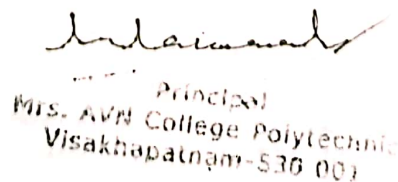 Principal
Mrs. AVN College Polytechnic
Visakhapatnam-530 001